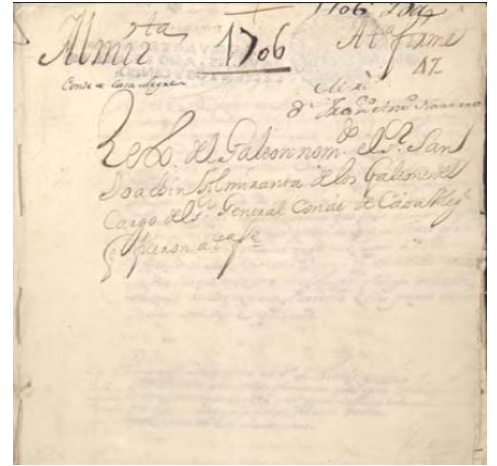 1706
Almir.ta 1706 At.a firme
Conde de Casa Alegre 17
d.n Fran.co Ant.o Navarro
del Galeon nom.do el S.r San
Joachin Almiranta de los Galeones del
Cargo del s.r General Conde de Casa Aleg.e
q fueron a